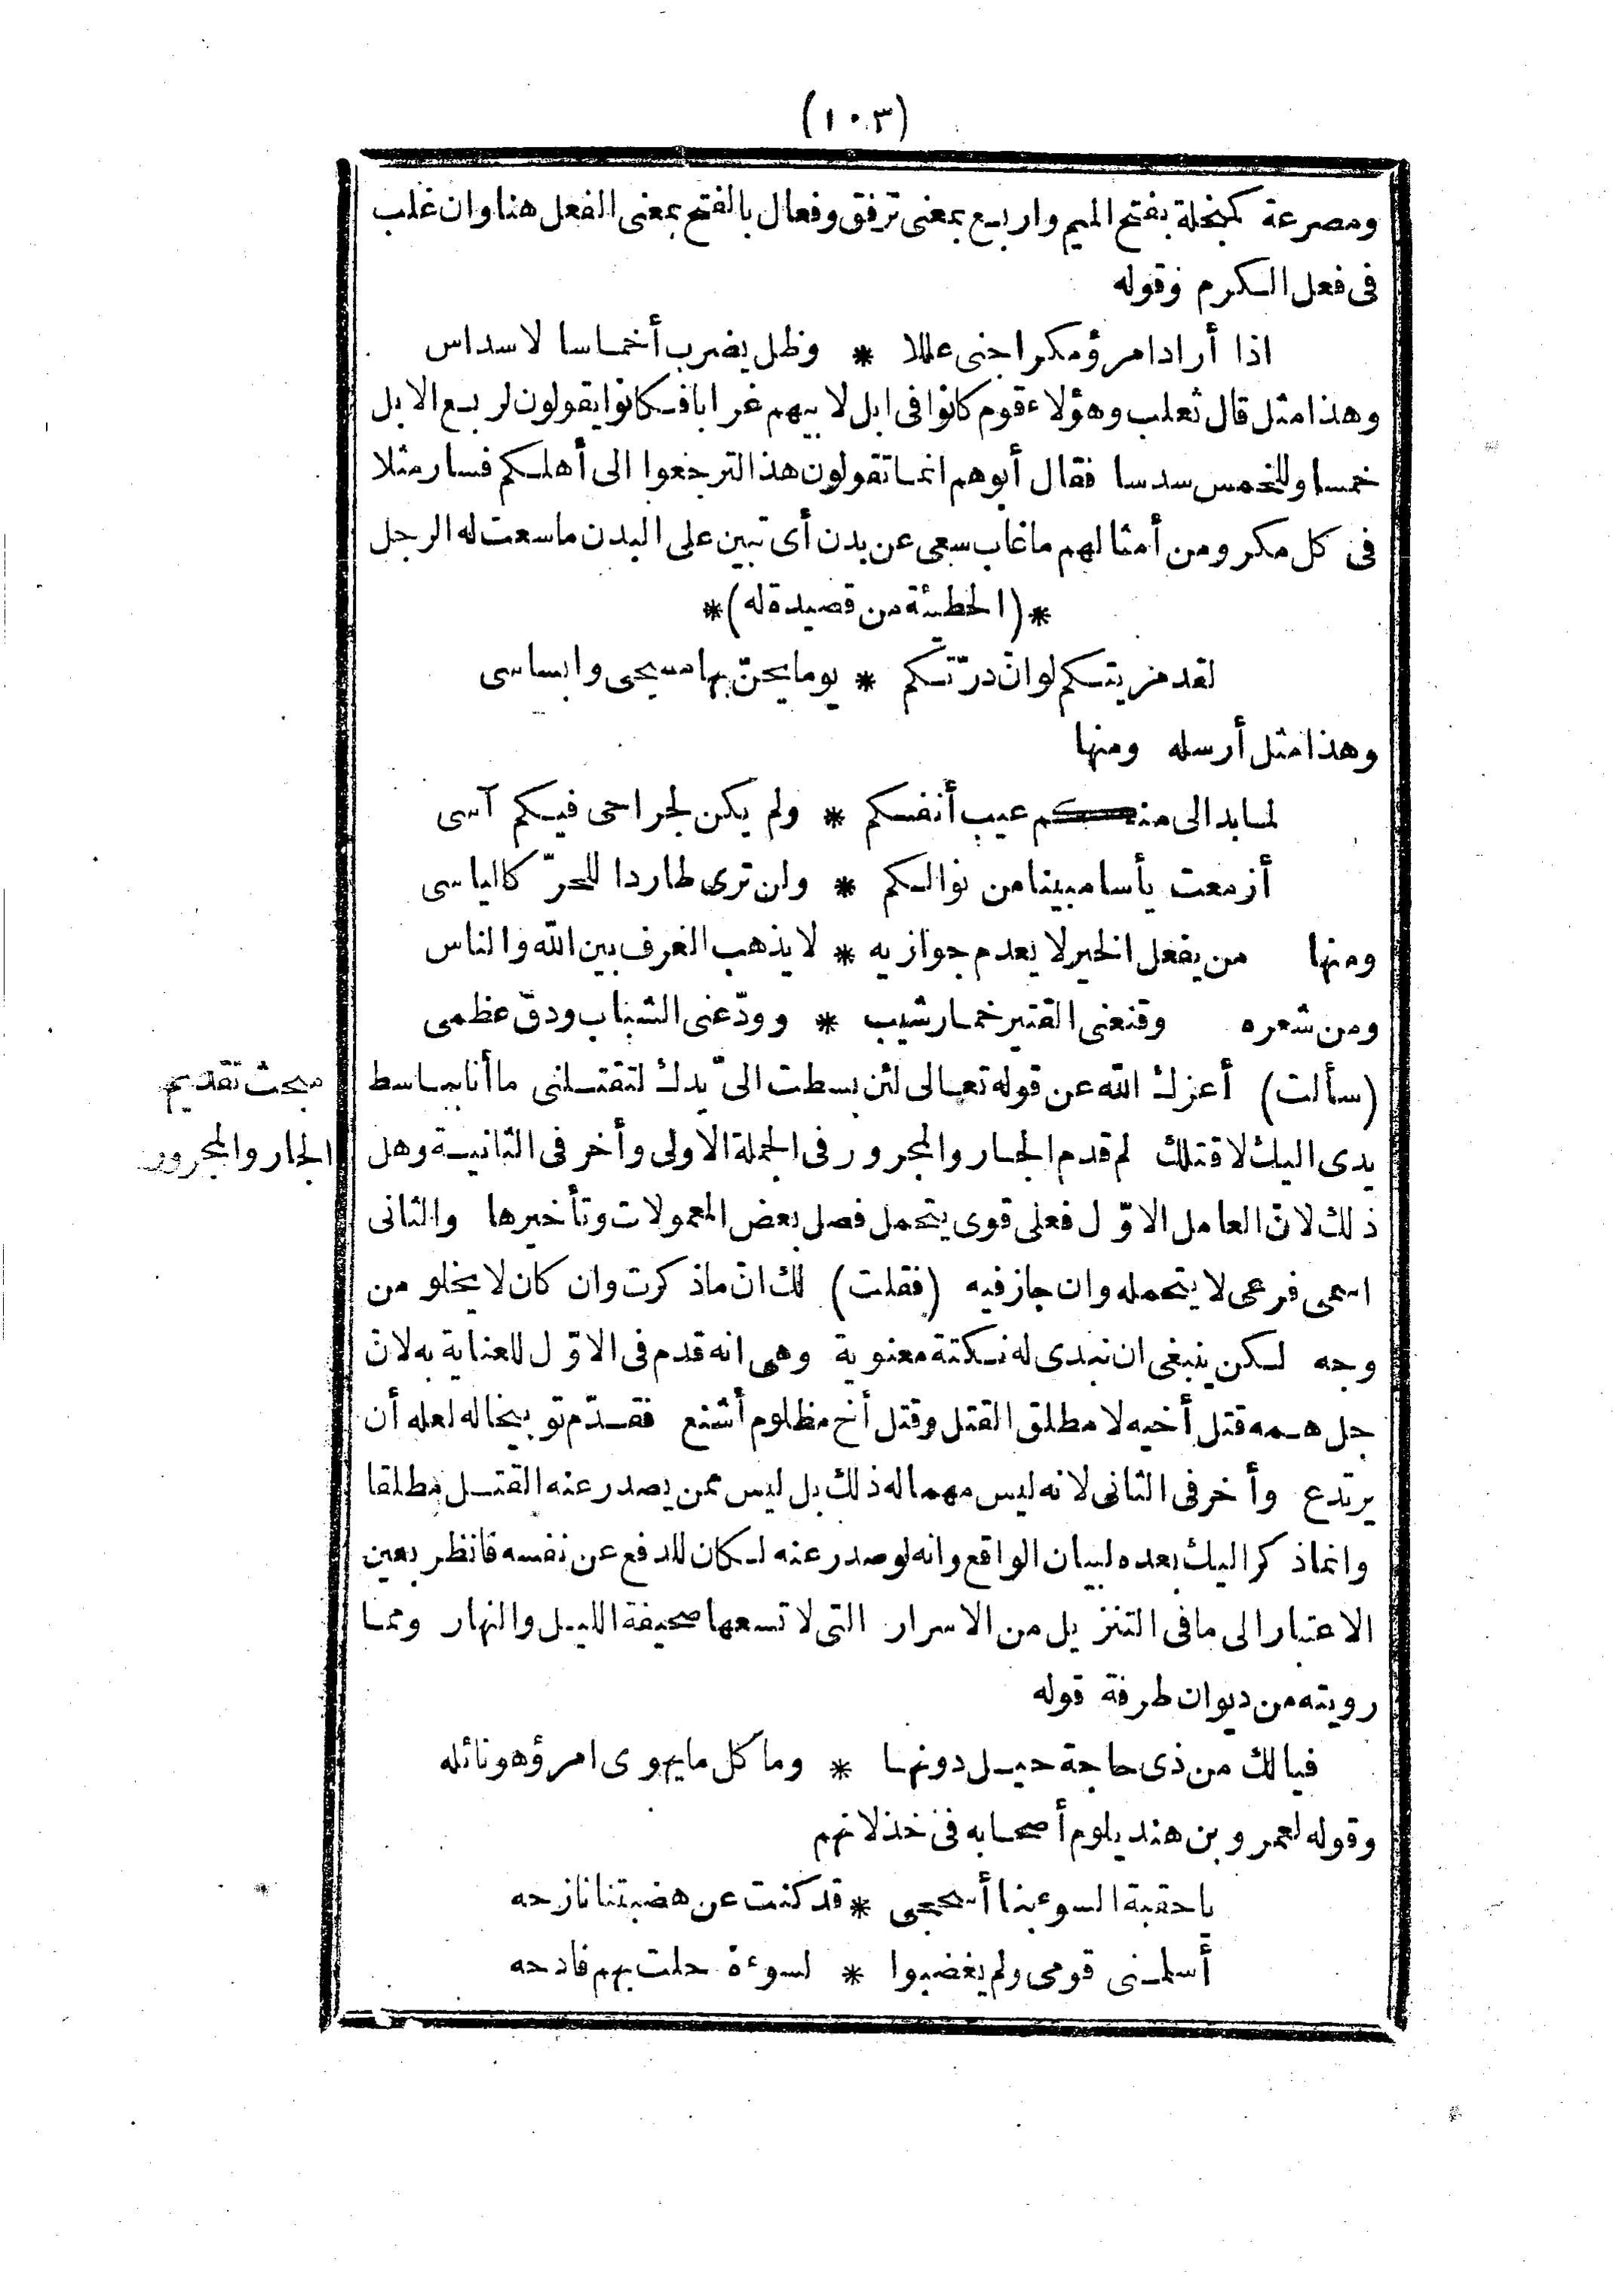 (١٠٣)
ومصرعة كمنخلة بفتح الميم واربع بمعنى ترفق وفعال بالفتح بمعنى الفعل هنا وان غلب
فى فعل الكرم وقوله
اذا أراد امرؤ مكرا جنى عللا * وظل يضرب أخماسا لاسداس
وهذا مثل قال ثعلب وهؤلاء قوم كانوا فى ابل لابيهم غرابا فكانوا يقولون لربع الابل
خمسا وللخمس سدسا فقال أبوهم انما تقولون هذا لترجعوا الى أهلكم فسار مثلا
فى كل مكر ومن أمثالهم ما غاب سعى عن بدن أى تبين على البدن ما سعت له الرجل
*(الحطيئة من قصيدة له)*
لقد مريتكم لو انّ درّتكم * يوما يحنّ بها مسحى وابساسى
وهذا مثل أرسله ومنها
لما بدا لى منكم عيب أنفسكم * ولم يكن لجراحى فيكم آسى
أزمعت يأسا مبينا من نوالكم * ولن ترى طاردا للحرّ كالياسى
ومنها من يفعل الخير لا يعدم جوازيه * لا يذهب العرف بين الله والناس
ومن شعره وقنعنى القتير خمار شيب * وودّعنى الشباب ودقّ عظمى
(سألت) أعزك الله عن قوله تعالى لئن بسطت الىّ يدك لتقتلنى ما أنا بباسط
مبحث تقديم
يدى اليك لاقتلك لم قدم الجار والمجرور فى الجملة الاولى وأخر فى الثانية وهل
الجار والمجرور
ذلك لانّ العامل الاوّل فعلى قوى يتحمل فصل بعض المعمولات وتأخيرها والثانى
اسمى فرعى لا يتحمله وان جاز فيه (فقلت) لك انّ ما ذكرت وان كان لا يخلو من
وجه لكن ينبغى ان نبدى له نكتة معنوية وهى انه قدم فى الاوّل للعناية به لانّ
جل همه قتل أخيه لا مطلق القتل وقتل أخ مظلوم أشنع فقدّم توبيخا له لعله أن
يرتدع وأخر فى الثانى لانه ليس مهما له ذلك بل ليس ممن يصدر عنه القتل مطلقا
وانما ذكر اليك بعده لبيان الواقع وانه لو صدر عنه لكان للدفع عن نفسه فانظر بعين
الاعتبار الى ما فى التنزيل من الاسرار التى لا تسعها صحيفة الليل والنهار ومما
رويته من ديوان طرفة قوله
فيا لك من ذى حاجة حيل دونها * وما كل ما يهوى امرؤ هو نائله
وقوله لعمرو بن هند يلوم أصحابه فى خذلانهم
يا حقبة السوء بنا أسححى * قد كنت عن هضبتنا نازحه
أسلمنى قومى ولم يغضبوا * لسوءة حلت بهم فادحه